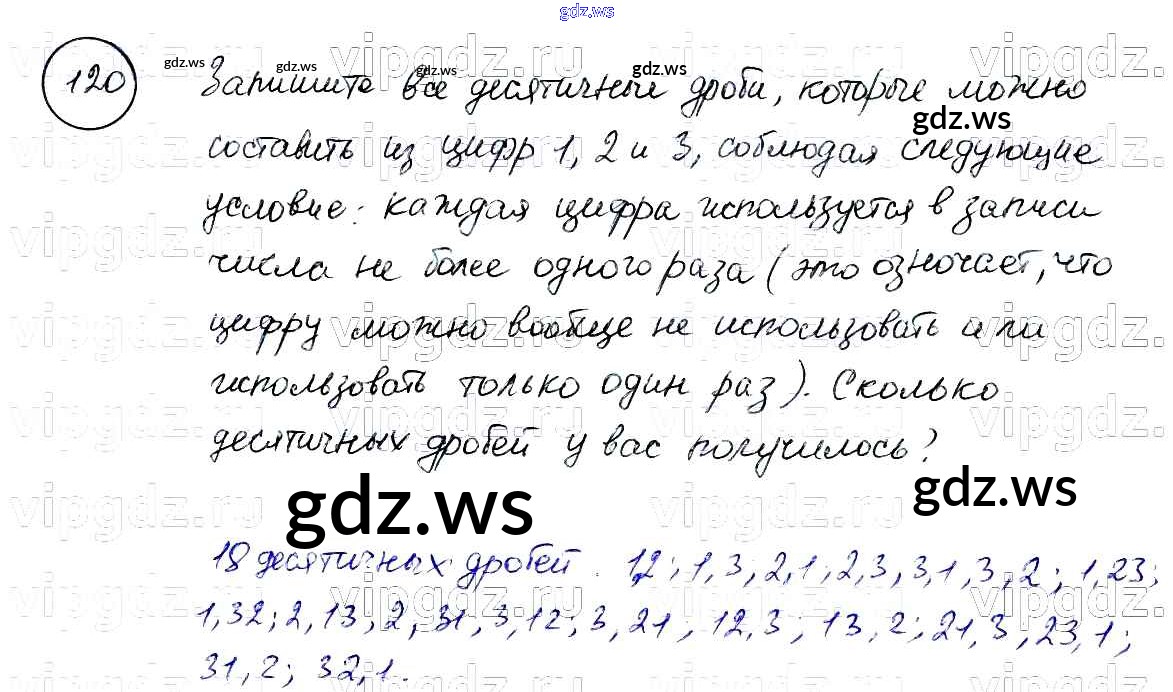 gdz.ws
120 Запишите все десятичные дроби, которые можно
составить из цифр 1, 2 и 3, соблюдая следующие
условие: каждая цифра используется в записи
числа не более одного раза (это означает, что
цифру можно вообще не использовать или
использовать только один раз). Сколько
десятичных дробей у вас получилось?
gdz.ws
gdz.ws
18 десятичных дробей. 1,2; 1,3; 2,1; 2,3; 3,1; 3,2; 1,23;
1,32; 2,13; 2,31; 3,12; 3,21; 12,3; 13,2; 21,3; 23,1;
31,2; 32,1.